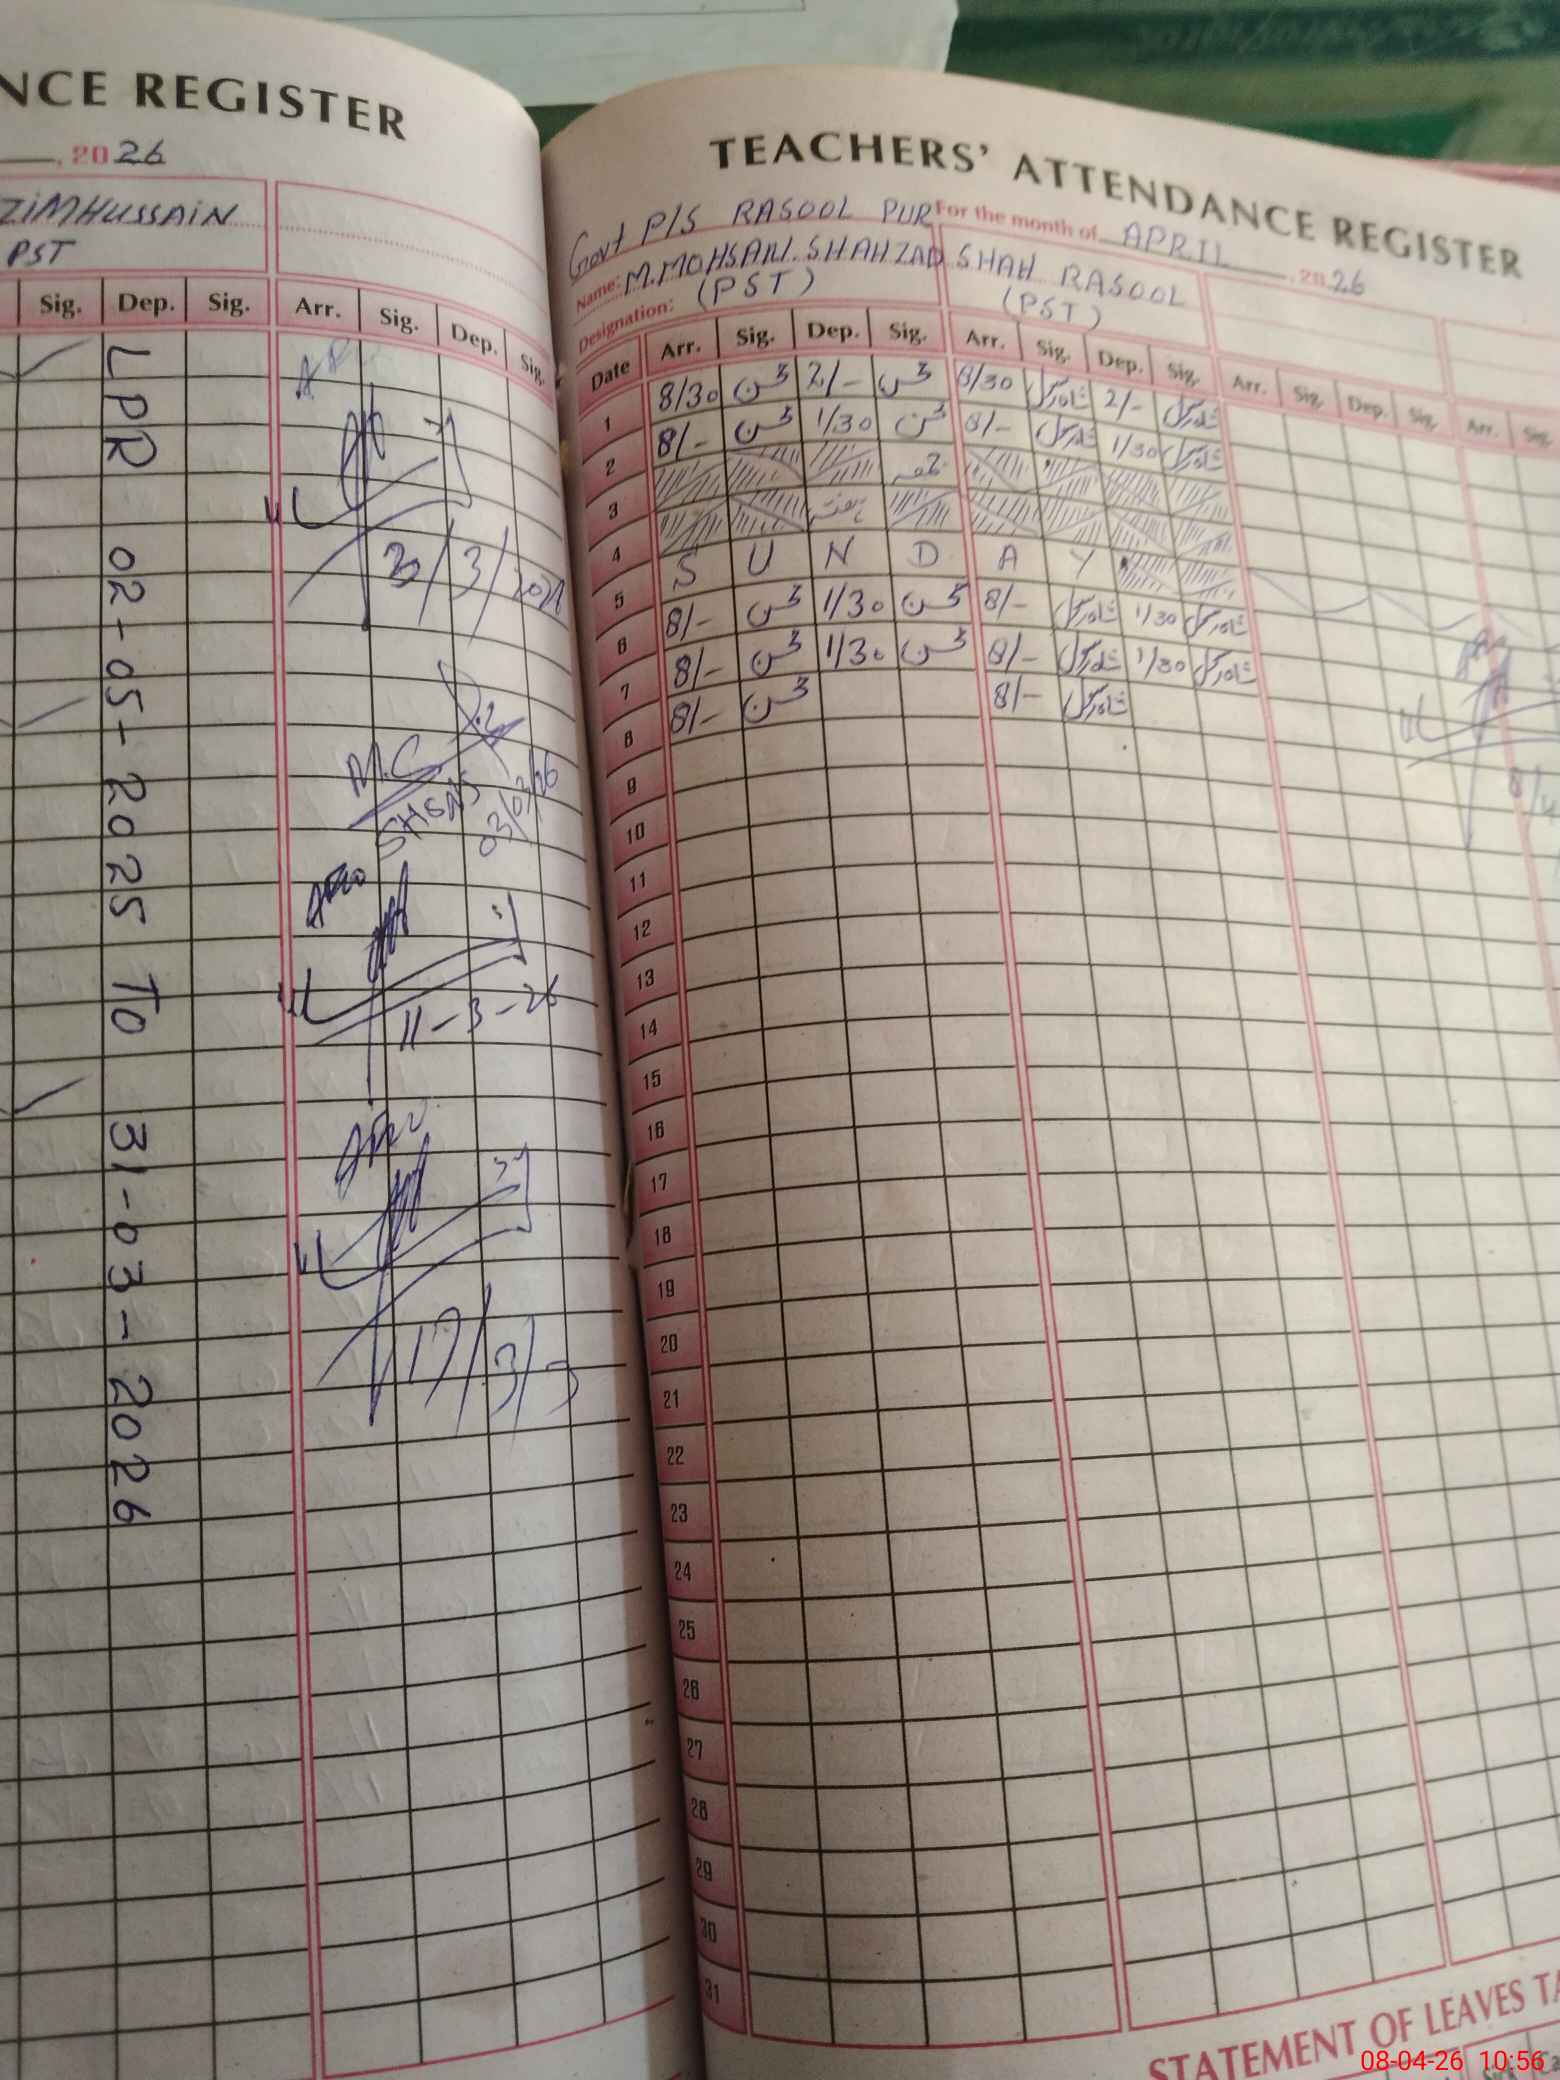 NCE REGISTER
, 2026
ZIMHUSSAIN
PST
Sig. Dep. Sig. Arr. Sig. Dep. Sig.
LPR 02-05-2025 TO 31-03-2026
M.C
03/03/26
11-3-26
17/3/
TEACHERS' ATTENDANCE REGISTER
Govt P/S RASOOL PUR For the month of APRIL, 2026
Name: M.MOHSAN.SHAHZAD SHAH RASOOL
Designation: (PST) (PST)
Date Arr. Sig. Dep. Sig. Arr. Sig. Dep. Sig. Arr. Sig. Dep. Sig. Arr. Sig.
1 8/30 محسن 2/- محسن 8/30 2/-
2 8/- محسن 1/30 محسن 8/- 1/30
3 جمعہ
4 ہفتہ
5 S U N D A Y
6 8/- محسن 1/30 محسن 8/- 1/30
7 8/- محسن 1/30 محسن 8/- 1/30
8 8/- محسن 8/-
9
10
11
12
13
14
15
16
17
18
19
20
21
22
23
24
25
26
27
28
29
30
31
STATEMENT OF LEAVES TA
08-04-26 10:56